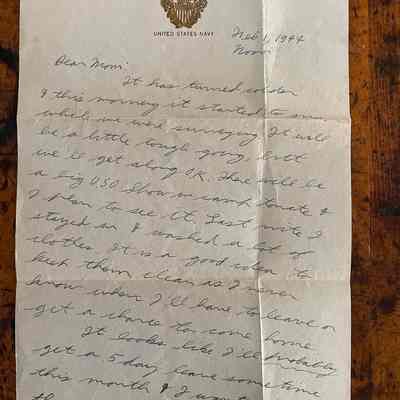 UNITED STATES NAVY
Feb 1, 1944
Noon
Dear Mom:
It has turned colder
& this morning it started to snow
while we were surveying. It will
be a little tough going, but
we'll get along O.K. There will be
a big USO Show in camp tonite &
I plan to see it. Last nite I
stayed in & washed a lot of
clothes. It is a good idea to
keep them clean as I never
know when I'll have to leave or
get a chance to come home.
It looks like I'll probably
get a 5 day leave sometime
this month & I want